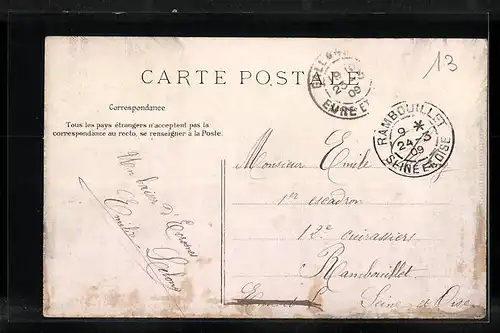 13
CARTE POSTALE
EURE ET
RAMBOUILLET
9 *
24 -3
09
SEINE ET OISE
Correspondance
Tous les pays étrangers n'acceptent pas la
correspondance au recto, se renseigner à la Poste.
Un baiser d'
Emile
Monsieur Emile
1er escadron
12e cuirassiers
Rambouillet
Seine et Oise